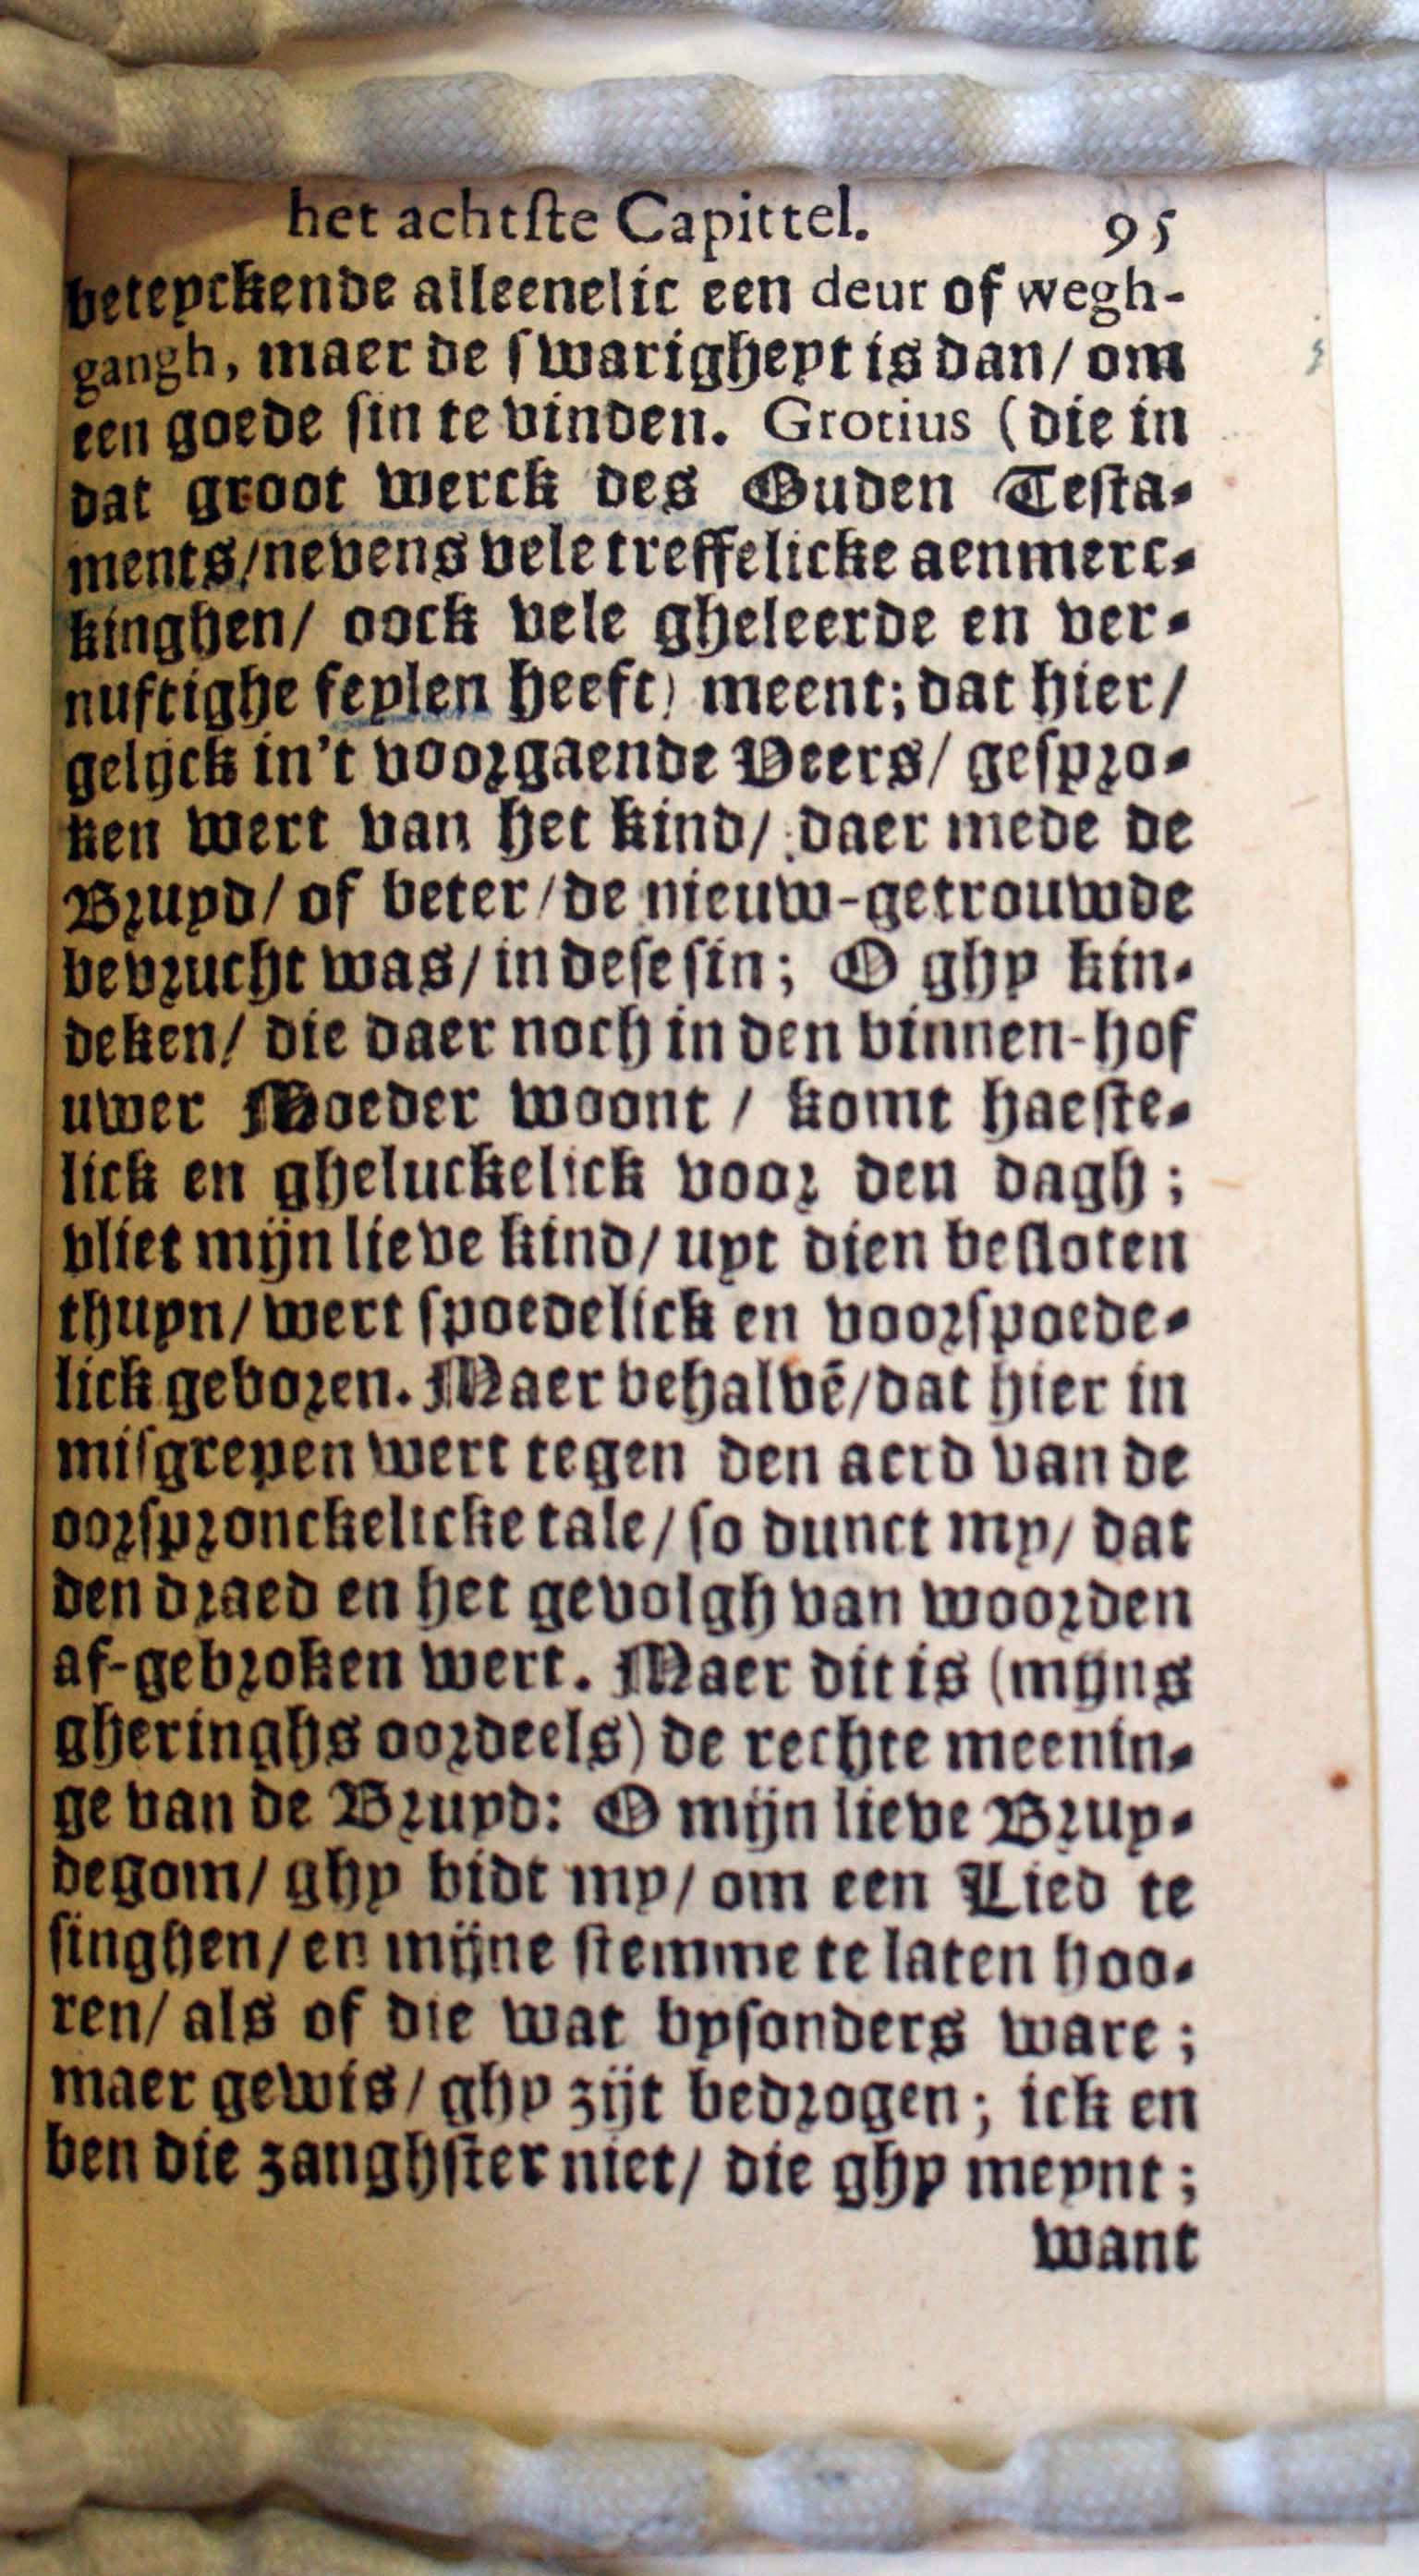 het achtste Capittel. 95
beteyckende alleenelic een deur of wegh-
gangh, maer de swarigheyt is dan/ om
een goede sin te vinden. Grotius (die in
dat groot werck des Ouden Testa-
ments/nevens vele treffelicke aenmerc-
kinghen/ oock vele gheleerde en ver-
nuftighe feylen heeft) meent; dat hier/
gelijck in't voorgaende Veers/ gespro-
ken wert van het kind/ daer mede de
Bruyd/ of beter/de nieuw-getrouwde
bevrucht was/ in dese sin; O ghy kin-
deken/ die daer noch in den binnen-hof
uwer Moeder woont / komt haeste-
lick en gheluckelick voor den dagh ;
vliet mijn lieve kind/ uyt dien besloten
thuyn/ wert spoedelick en voorspoede-
lick geboren. Maer behalvē/dat hier in
misgrepen wert tegen den aerd van de
oorspronckelicke tale/ so dunct my/ dat
den draed en het gevolgh van woorden
af-gebroken wert. Maer dit is (mijns
gheringhs oordeels) de rechte meenin-
ge van de Bruyd: O mijn lieve Bruy-
degom/ ghy bidt my/ om een Lied te
singhen/ en mijne stemme te laten hoo-
ren/ als of die wat bysonders ware ;
maer gewis/ ghy zijt bedrogen ; ick en
ben die zanghster niet/ die ghy meynt ;
want